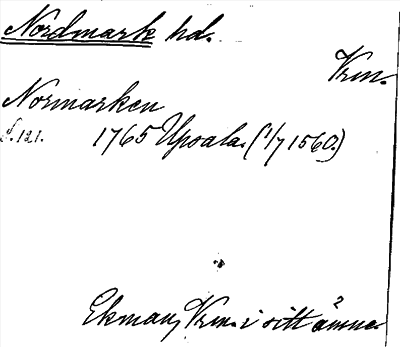 Nordmark hd.
Vrm.
Normarken
S. 121. 1765 Upsala. (1/7 1560.)
Ekman, Vrm. i sitt ämne